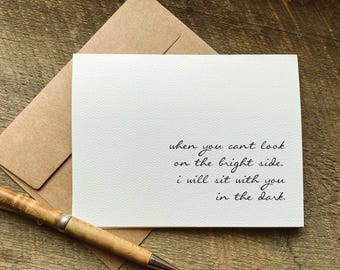 when you cant look
on the bright side.
i will sit with you
in the dark.